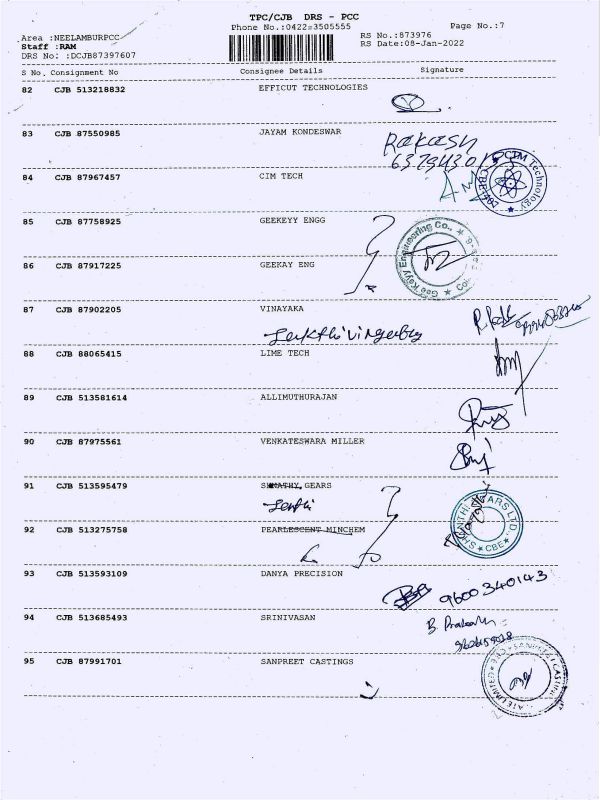 TPC/CJB DRS - PCC
Phone No.:0422-3505555 Page No.:7
Area :NEELAMBURPCC RS No.:873976
Staff :RAM RS Date:08-Jan-2022
DRS No: :DCJB87397607
S No. Consignment No Consignee Details Signature
82 CJB 513218832 EFFICUT TECHNOLOGIES
83 CJB 87550985 JAYAM KONDESWAR
Rakash
84 CJB 87967457 CIM TECH
CIM Technology
CBE
85 CJB 87758925 GEEKEYY ENGG
Gee Keyy Engineering Co.,
86 CJB 87917225 GEEKAY ENG
87 CJB 87902205 VINAYAKA
88 CJB 88065415 LIME TECH
89 CJB 513581614 ALLIMUTHURAJAN
90 CJB 87975561 VENKATESWARA MILLER
91 CJB 513595479 GEARS
SHANTHI GEARS LTD.
CBE
92 CJB 513275758 PEARLESCENT MINCHEM
93 CJB 513593109 DANYA PRECISION
9600340143
94 CJB 513685493 SRINIVASAN
95 CJB 87991701 SANPREET CASTINGS